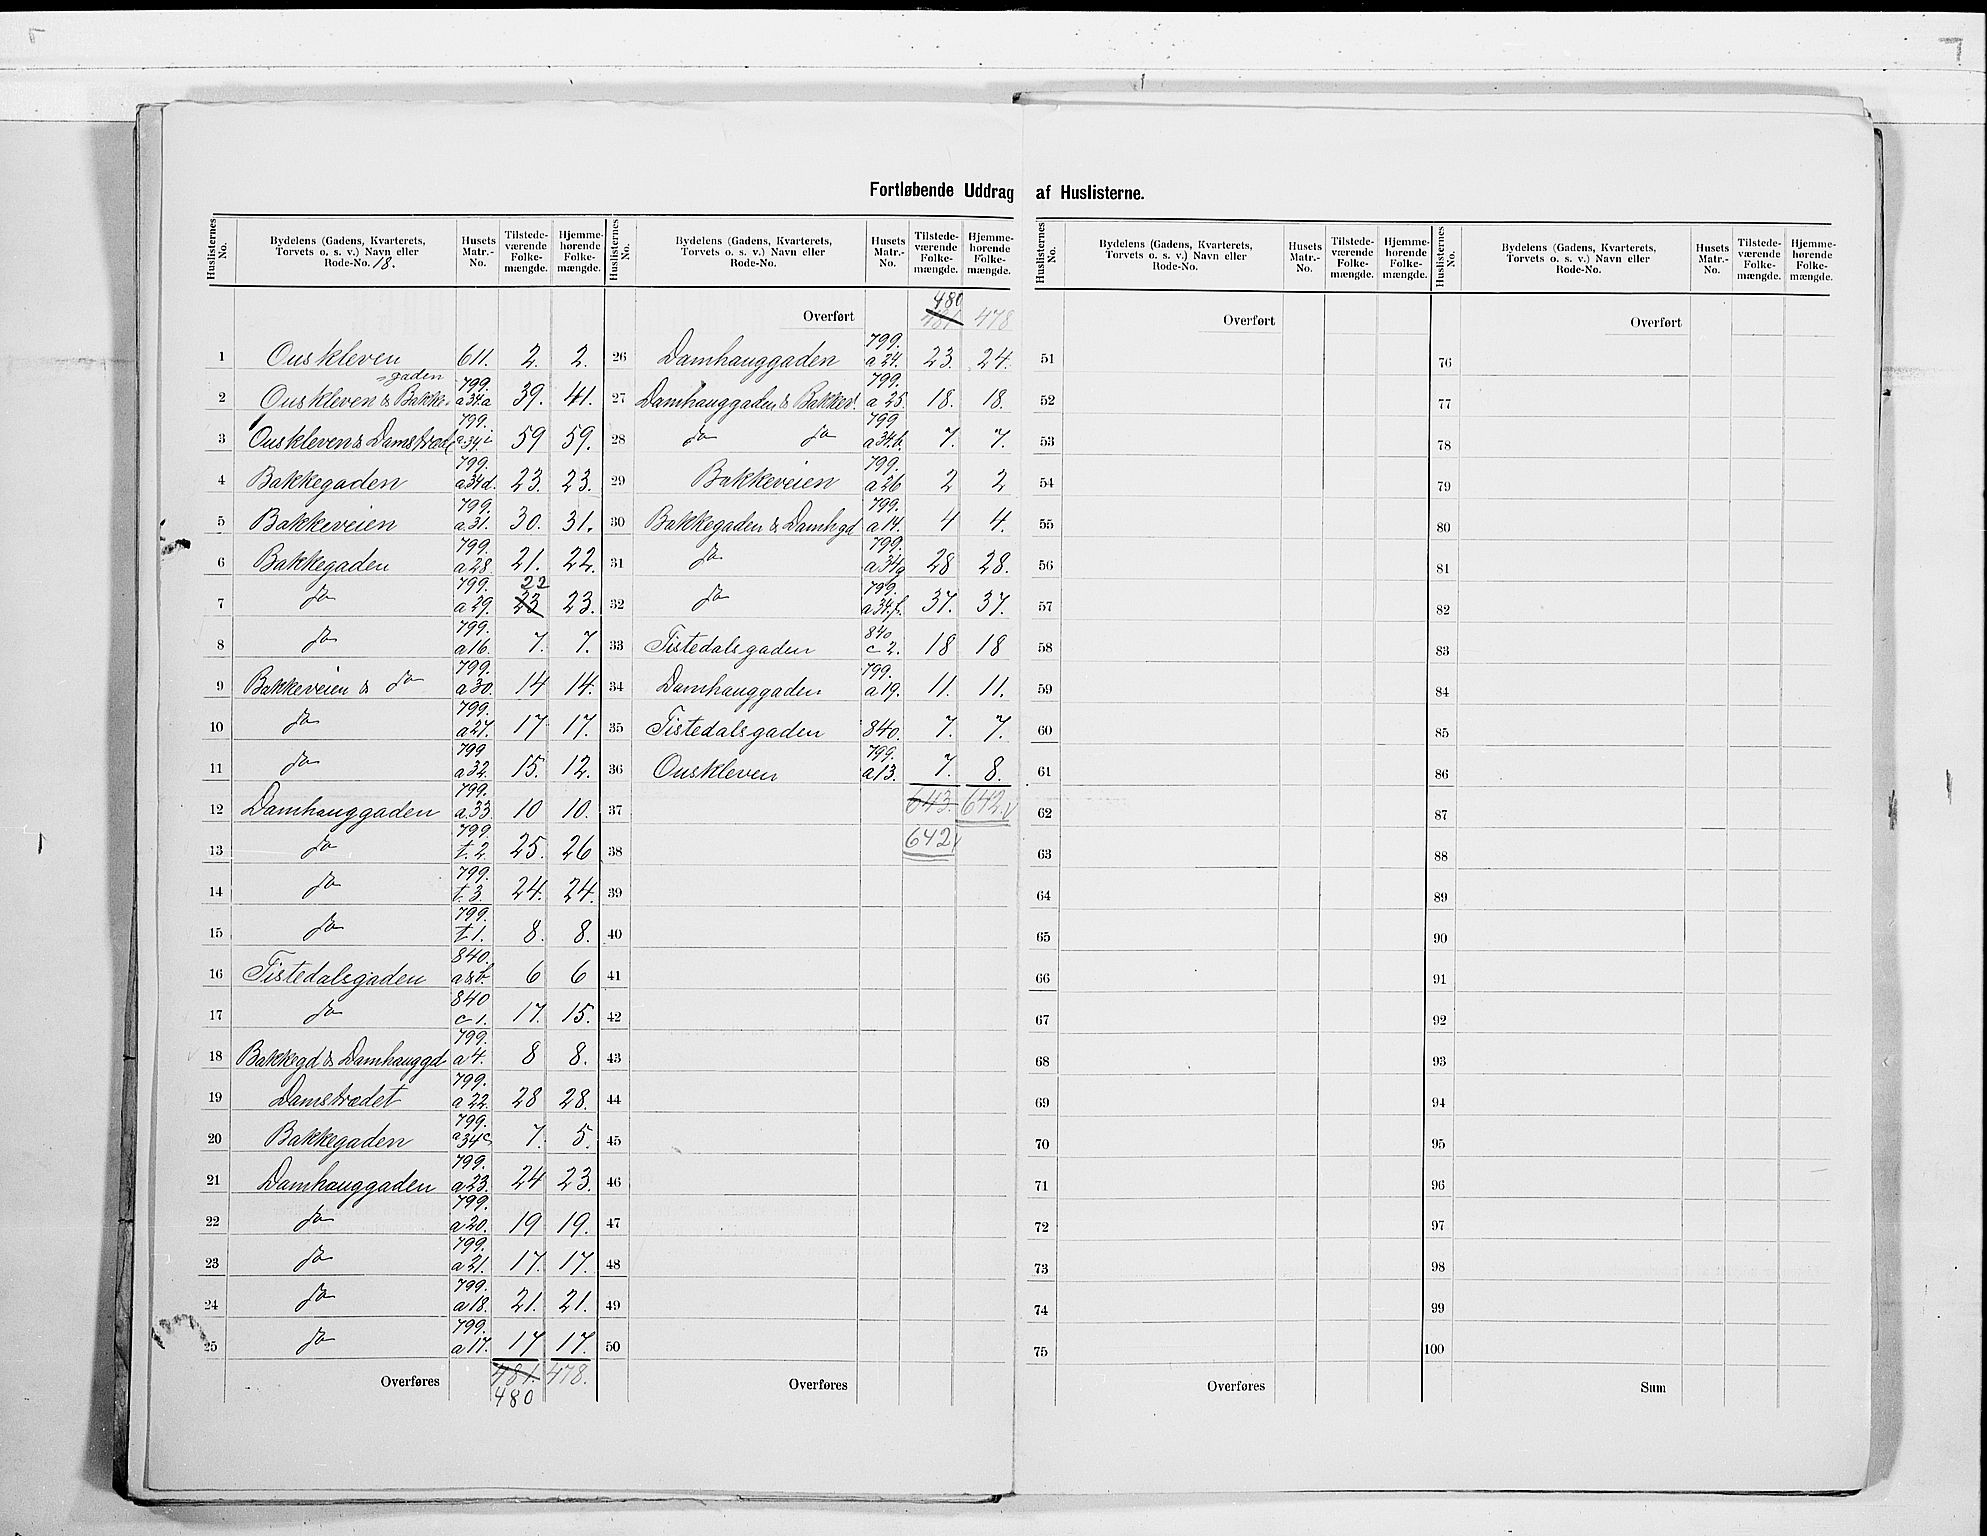 Fortløbende Uddrag af Huslisterne.
Huslisternes No. | Bydelens (Gadens, Kvarterets, Torvets o. s. v.) Navn eller Rode-No. 18. | Husets Matr.-No. | Tilstede-værende Folke-mængde. | Hjemme-hørende Folke-mængde.
1 Ouskleven 611. 2. 2.
2 Ouskleven & Bakke-gaden 799. a34a 39. 41.
3 Ouskleven & Damstrædet 799. a34i 59 59.
4 Bakkegaden 799. a34d. 23. 23.
5 Bakkeveien 799. a31. 30. 31.
6 Bakkegaden 799. a28. 21. 22.
7 do 799. a29. 23 22 23.
8 do 799. a16. 7. 7.
9 Bakkeveien & do 799. a30. 14 14.
10 do 799. a27. 17 17.
11 do 799 a32. 15. 12.
12 Damhauggaden 799. a33. 10 10.
13 do 799. t. 2. 25. 26
14 do 799. t. 3. 24. 24.
15 do 799. t1. 8. 8.
16 Tistedalsgaden 840. a&b. 6 6
17 do 840 c1. 17. 15.
18 Bakkegd & Damhauggd 799. a4. 8 8.
19 Damstrædet 799. a22. 28 28.
20 Bakkegaden 799. a34c 7. 5.
21 Damhauggaden 799. a23. 24 23.
22 do 799. a20. 19 19.
23 do 799. a21. 17. 17.
24 do 799. a18. 21. 21.
25 do 799. a17. 17 17.
Overføres 481. 478.
480
Huslisternes No. | Bydelens (Gadens, Kvarterets, Torvets o. s. v.) Navn eller Rode-No. | Husets Matr.-No. | Tilstede-værende Folke-mængde. | Hjemme-hørende Folke-mængde.
480
Overført 481 478
26 Damhauggaden 799. a24. 23. 24.
27 Damhauggaden & Bakkev. 799. a25. 18. 18.
28 do do 799 a34h. 7. 7.
29 Bakkeveien 799. a26 2 2
30 Bakkegaden & Damhgd 799. a14. 4 4.
31 do 799. a34g 28 28.
32 do 799. a34f. 37. 37.
33 Tistedalsgaden 840 c2. 18 18
34 Damhauggaden 799. a19. 11. 11.
35 Tistedalsgaden 840. 7. 7.
36 Ouskleven 799. a13. 7. 8.
37 643. 642.
38 642
39
40
41
42
43
44
45
46
47
48
49
50
Overføres
Huslisternes No. | Bydelens (Gadens, Kvarterets, Torvets o. s. v.) Navn eller Rode-No. | Husets Matr.-No. | Tilstede-værende Folke-mængde. | Hjemme-hørende Folke-mængde.
Overført
51
52
53
54
55
56
57
58
59
60
61
62
63
64
65
66
67
68
69
70
71
72
73
74
75
Overføres
Huslisternes No. | Bydelens (Gadens, Kvarterets, Torvets o. s. v.) Navn eller Rode-No. | Husets Matr.-No. | Tilstede-værende Folke-mængde. | Hjemme-hørende Folke-mængde.
Overført
76
77
78
79
80
81
82
83
84
85
86
87
88
89
90
91
92
93
94
95
96
97
98
99
100
Sum